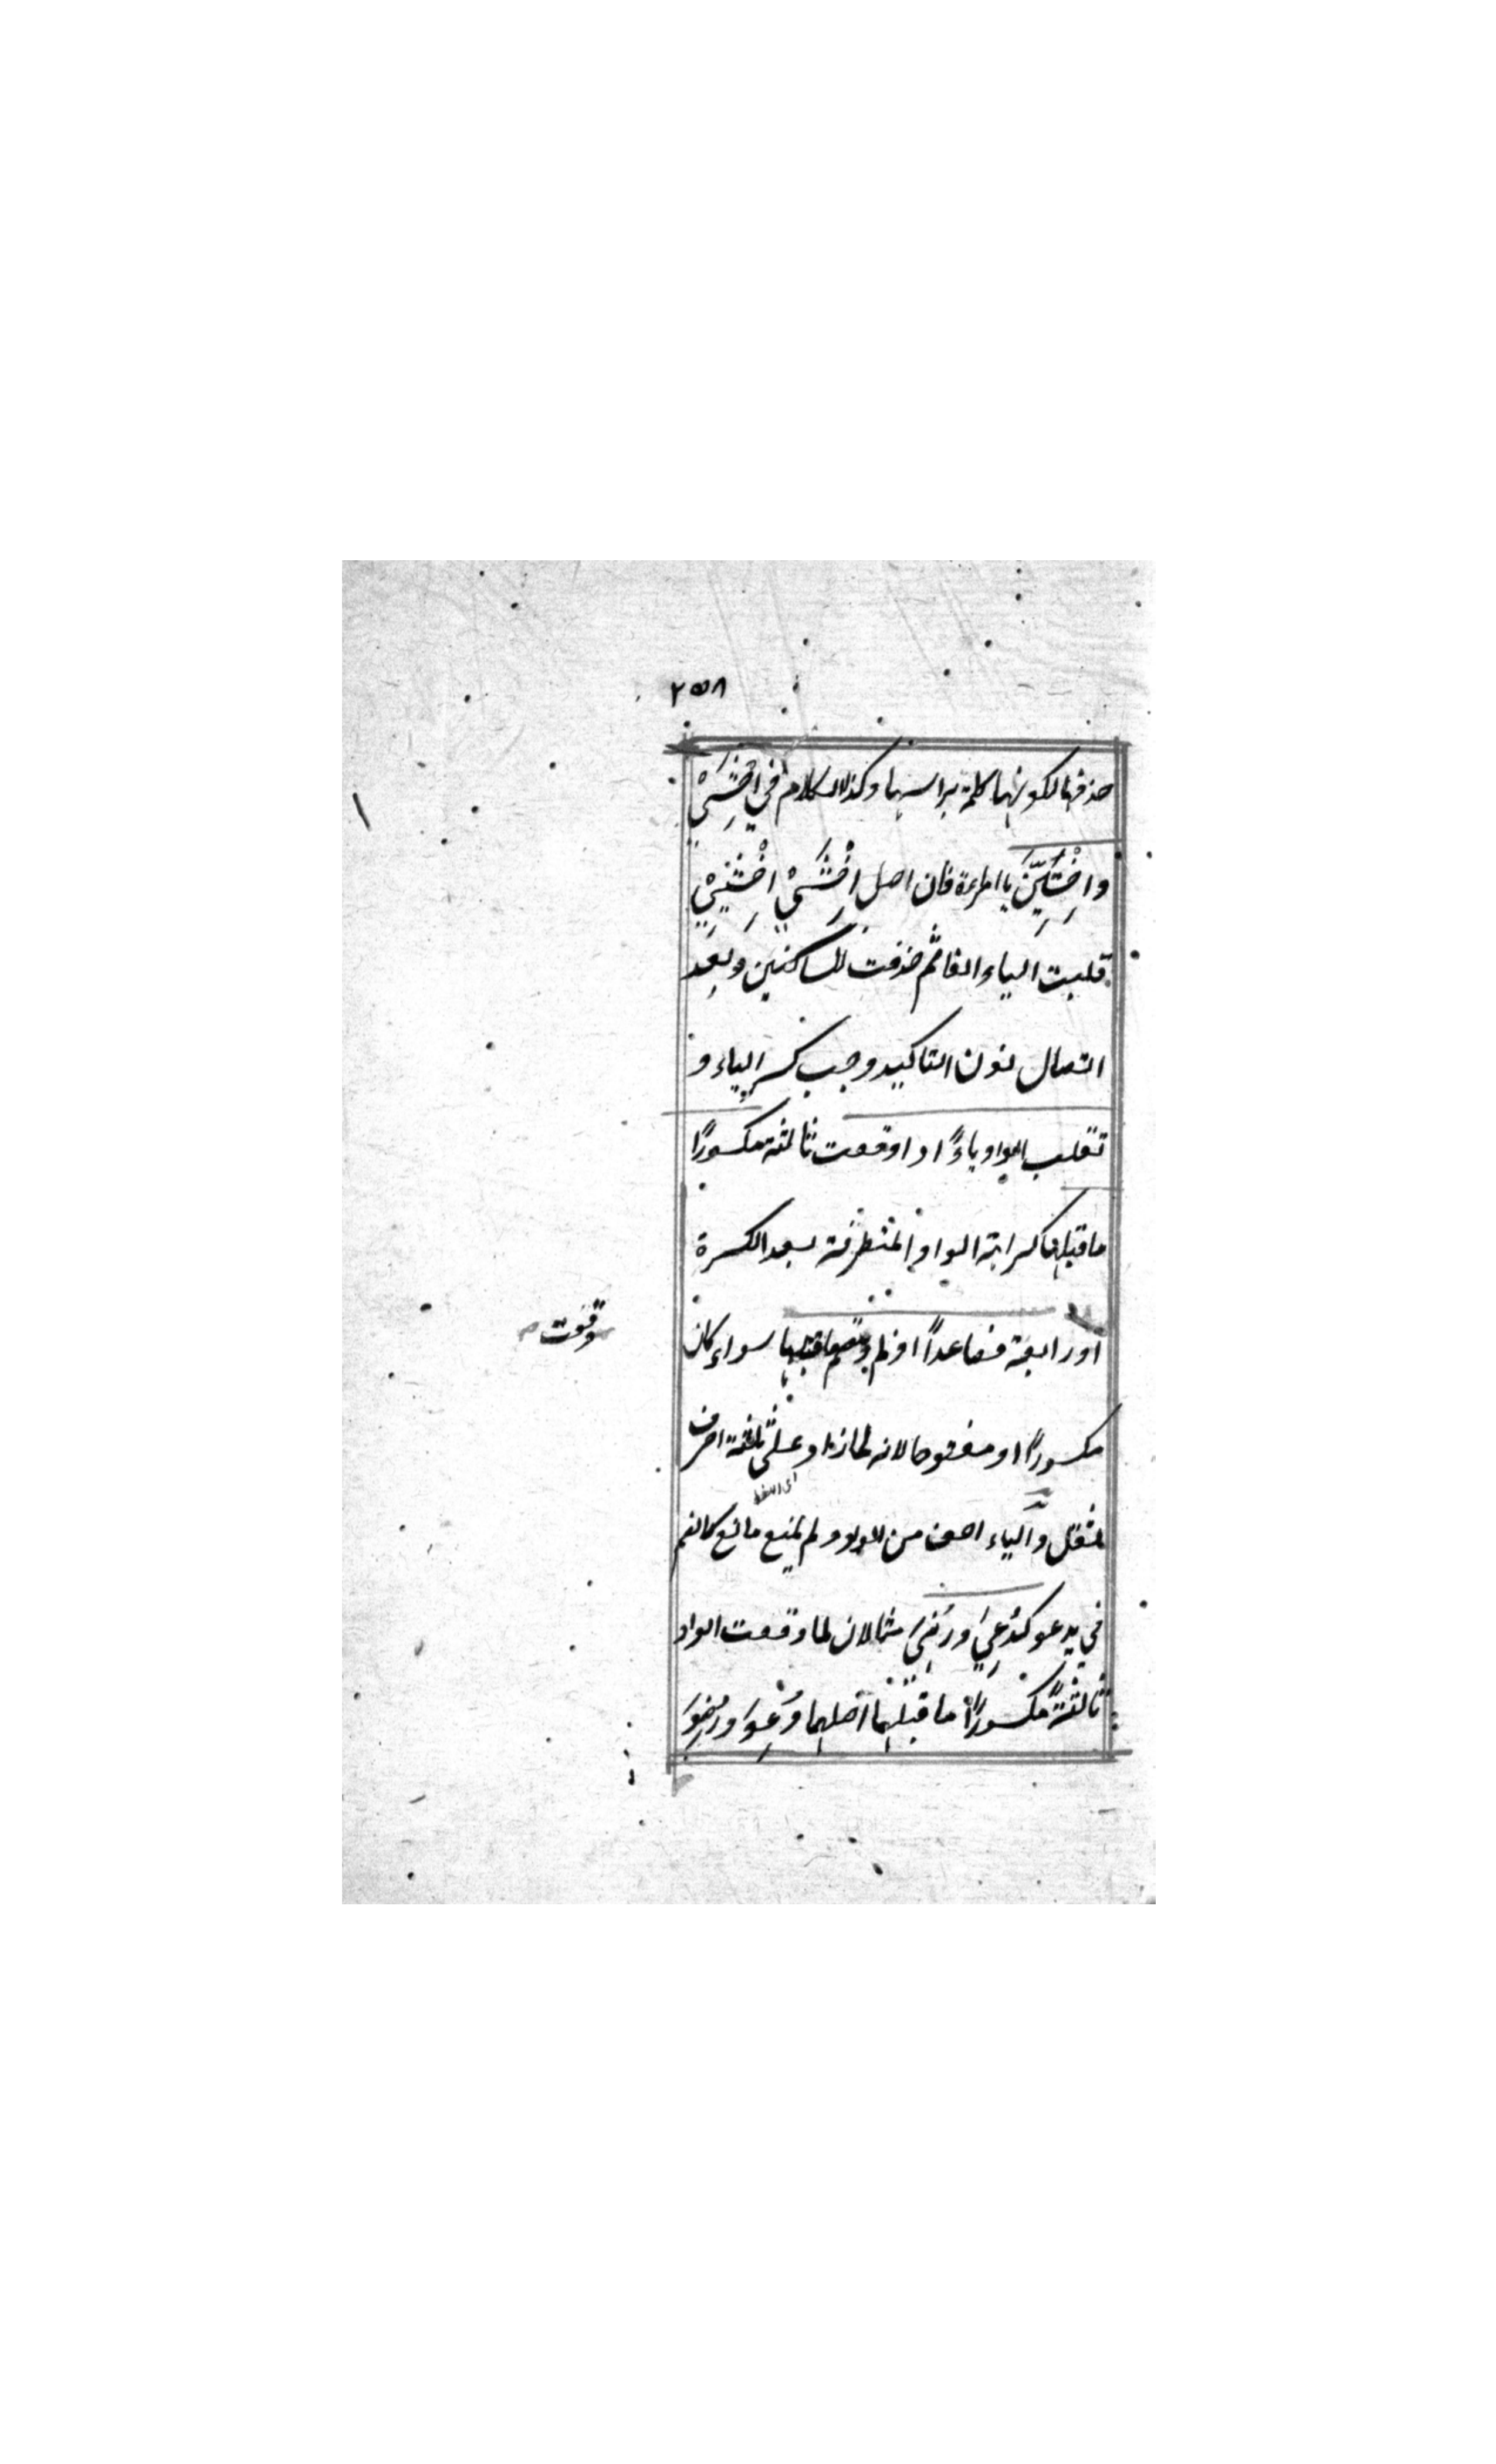 ٢٥٨
حذفها لكونهما كلمة براسهما وكذلك الكلام في اِخْشَيْ
واِخْشَيِنَّ يا امراءة فان اصل اِخْشَيْ اِخْشَيِيْ
قلبت الياء الفا ثم حذفت للساكنين وبعد
اتصال نون التاكيد وجب كسر الياء و
تقلب الواو ياءً اذا وقعت ثالثة مكسورًا
ما قبلها لكراهة الواو المتطرفة بعد الكسرة
اورابعة فصاعداً اذ لم ينضم ما قبلها سواء كان
وقعت
مكسورًا او مفتوحا لانه لما زاد على ثلثة احرف
اى اللفظ
ثقل والياء اخف من الواو ولم يمنع مانع كالضم
في يدعو كدُعِيَ ورُضِيَ مثالان لما وقعت الواو
ثالثةً مكسورًا ما قبلهما اصلهما دُعِوَ ورُضِوَ